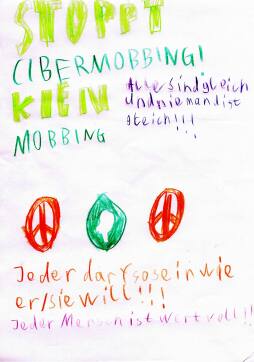 STOPPT
CIBERMOBBING!
KIEN
MOBBING
Alle sind gleich
und niemand ist
gleich!!!
Jeder darf so sein wie
er/sie will!!!
Jeder Mensch ist wertvoll!!